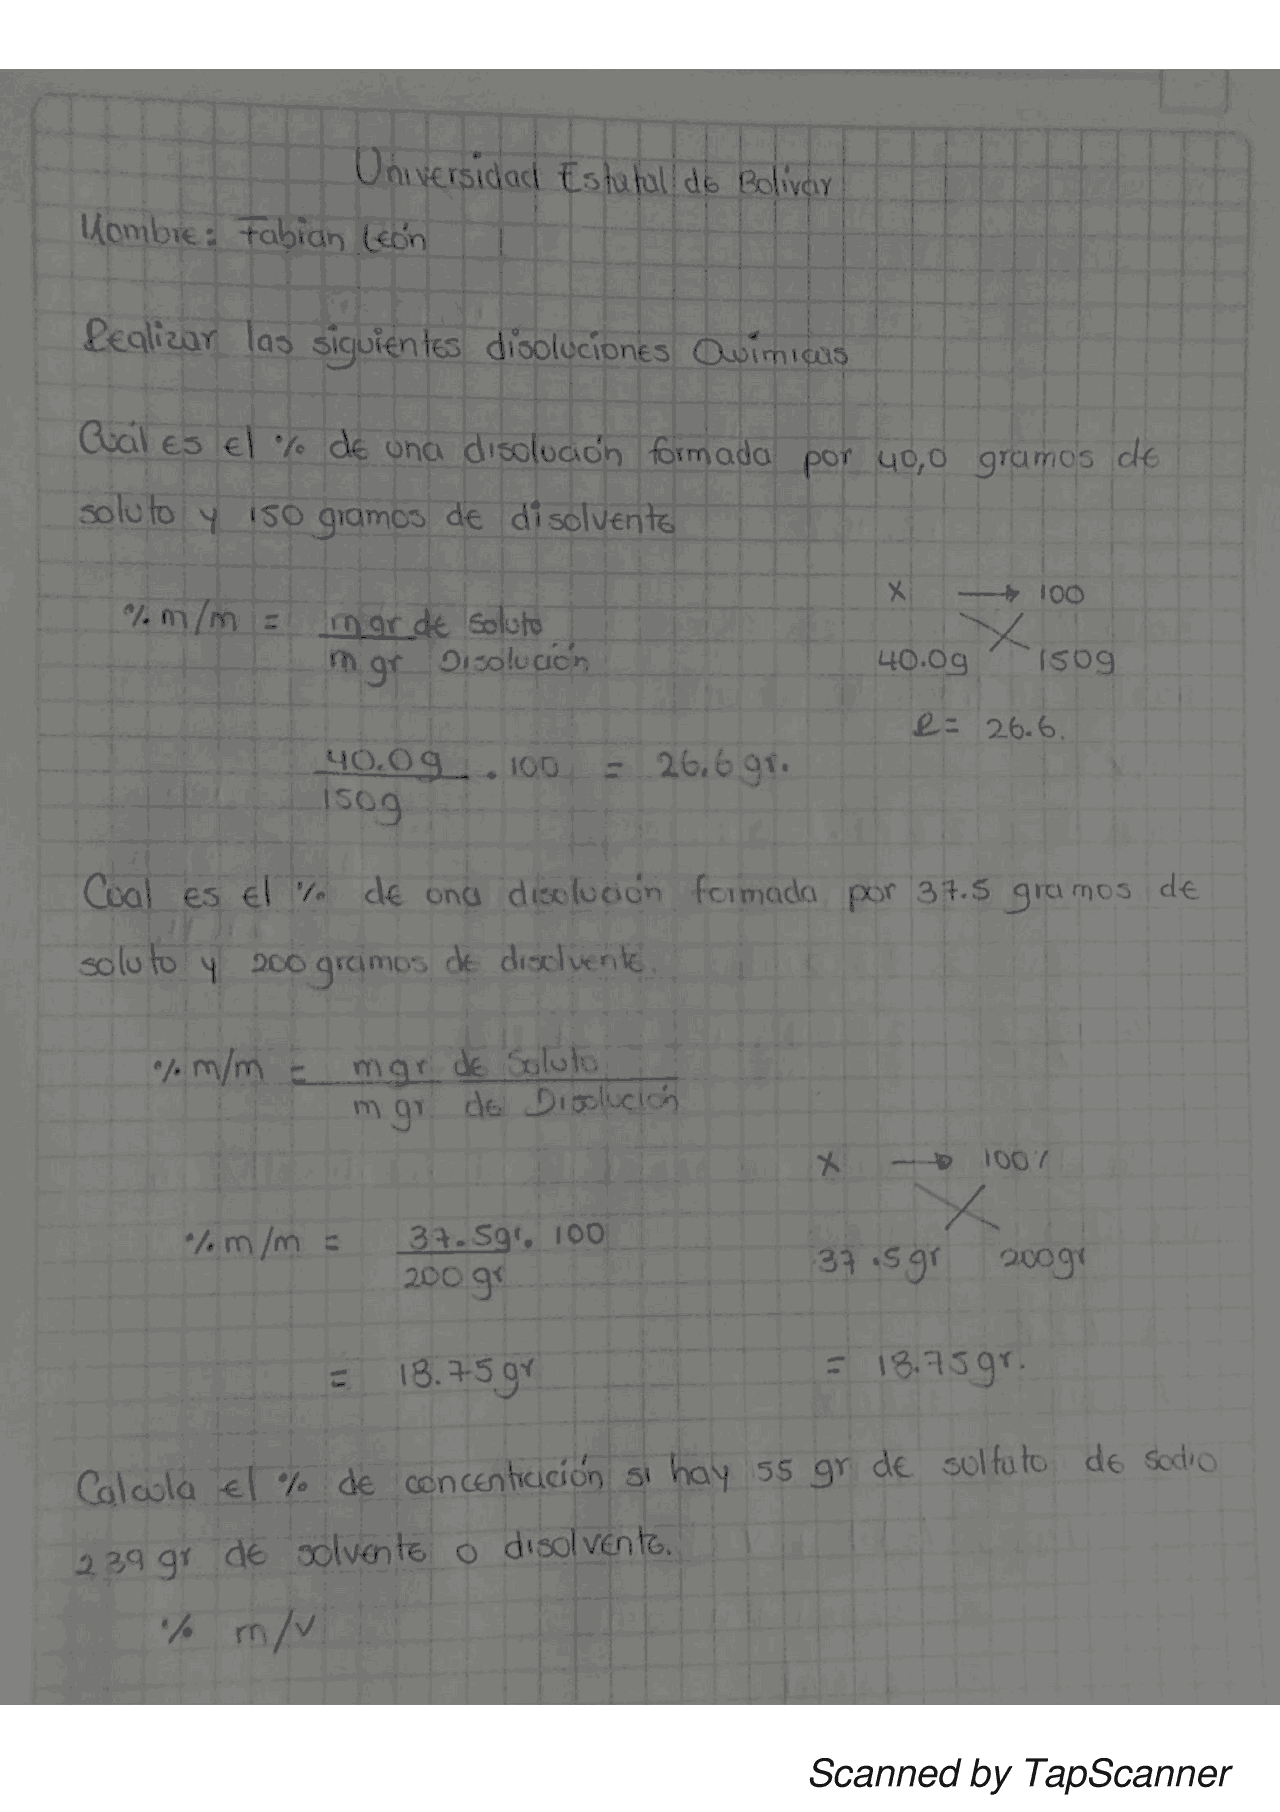 Universidad Estatal de Bolivar
Nombre: Fabian León
Realizar las siguientes disoluciones Químicas
Cuál es el % de una disolución formada por 40,0 gramos de
soluto y 150 gramos de disolvente
% m/m = m gr de soluto
m gr Disolución
x → 100
40.0g 150g
R= 26.6.
40.0g . 100 = 26.6 gr.
150g
Cual es el % de una disolución formada por 37.5 gramos de
soluto y 200 gramos de disolvente.
% m/m = m gr de soluto
m gr de Disolución
x → 100%
37.5gr 200gr
= 18.75gr.
% m/m = 37.5gr. 100
200 gr
= 18.75gr
Calcula el % de concentración si hay 55 gr de sulfato de sodio
239 gr de solvente o disolvente.
% m/v
Scanned by TapScanner